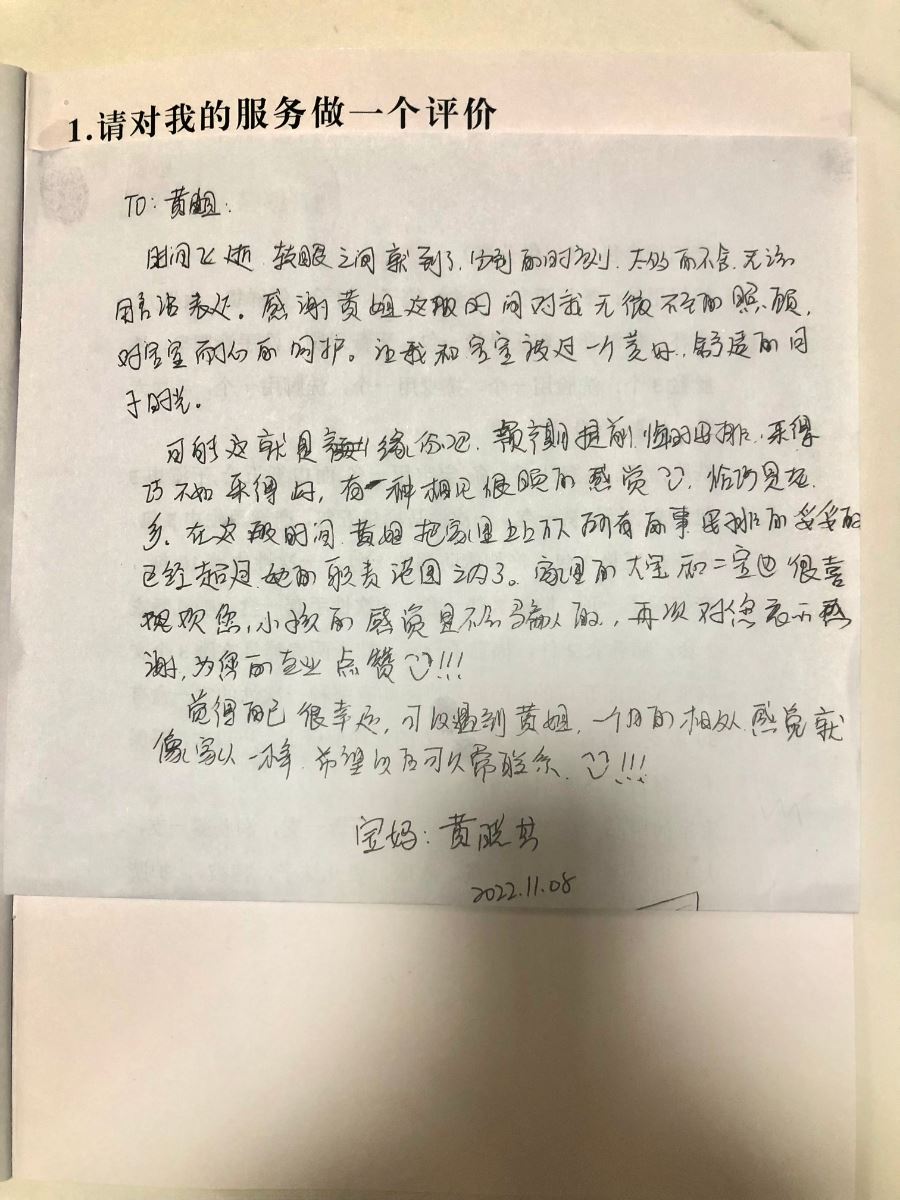 1.请对我的服务做一个评价
TO: 黄姐:
时间飞逝.转眼之间就到了.分别的时刻.太多的不舍.无法
用言语表达。感谢黄姐这段时间对我无微不至的照顾,
对宝宝耐心的呵护。让我和宝宝渡过一个美好.舒适的月
子时光。
可能这就是缘份吧.预产期提前.临时安排.来得
早不如来得好,有一种相见很晚的感觉.恰巧是老
乡.在这段时间.黄姐把家里上上下下所有的事安排的妥妥的
已经超过她的职责范围之内了。家里的大宝和二宝也很喜
欢您,小孩的感觉是不会骗人的,再次对您表示感
谢,为您的专业点赞!!!
觉得自己很幸运,可以遇到黄姐,一个月的相处感觉就
像家人一样.希望以后可以常联系.!!!
宝妈:黄
2022.11.08